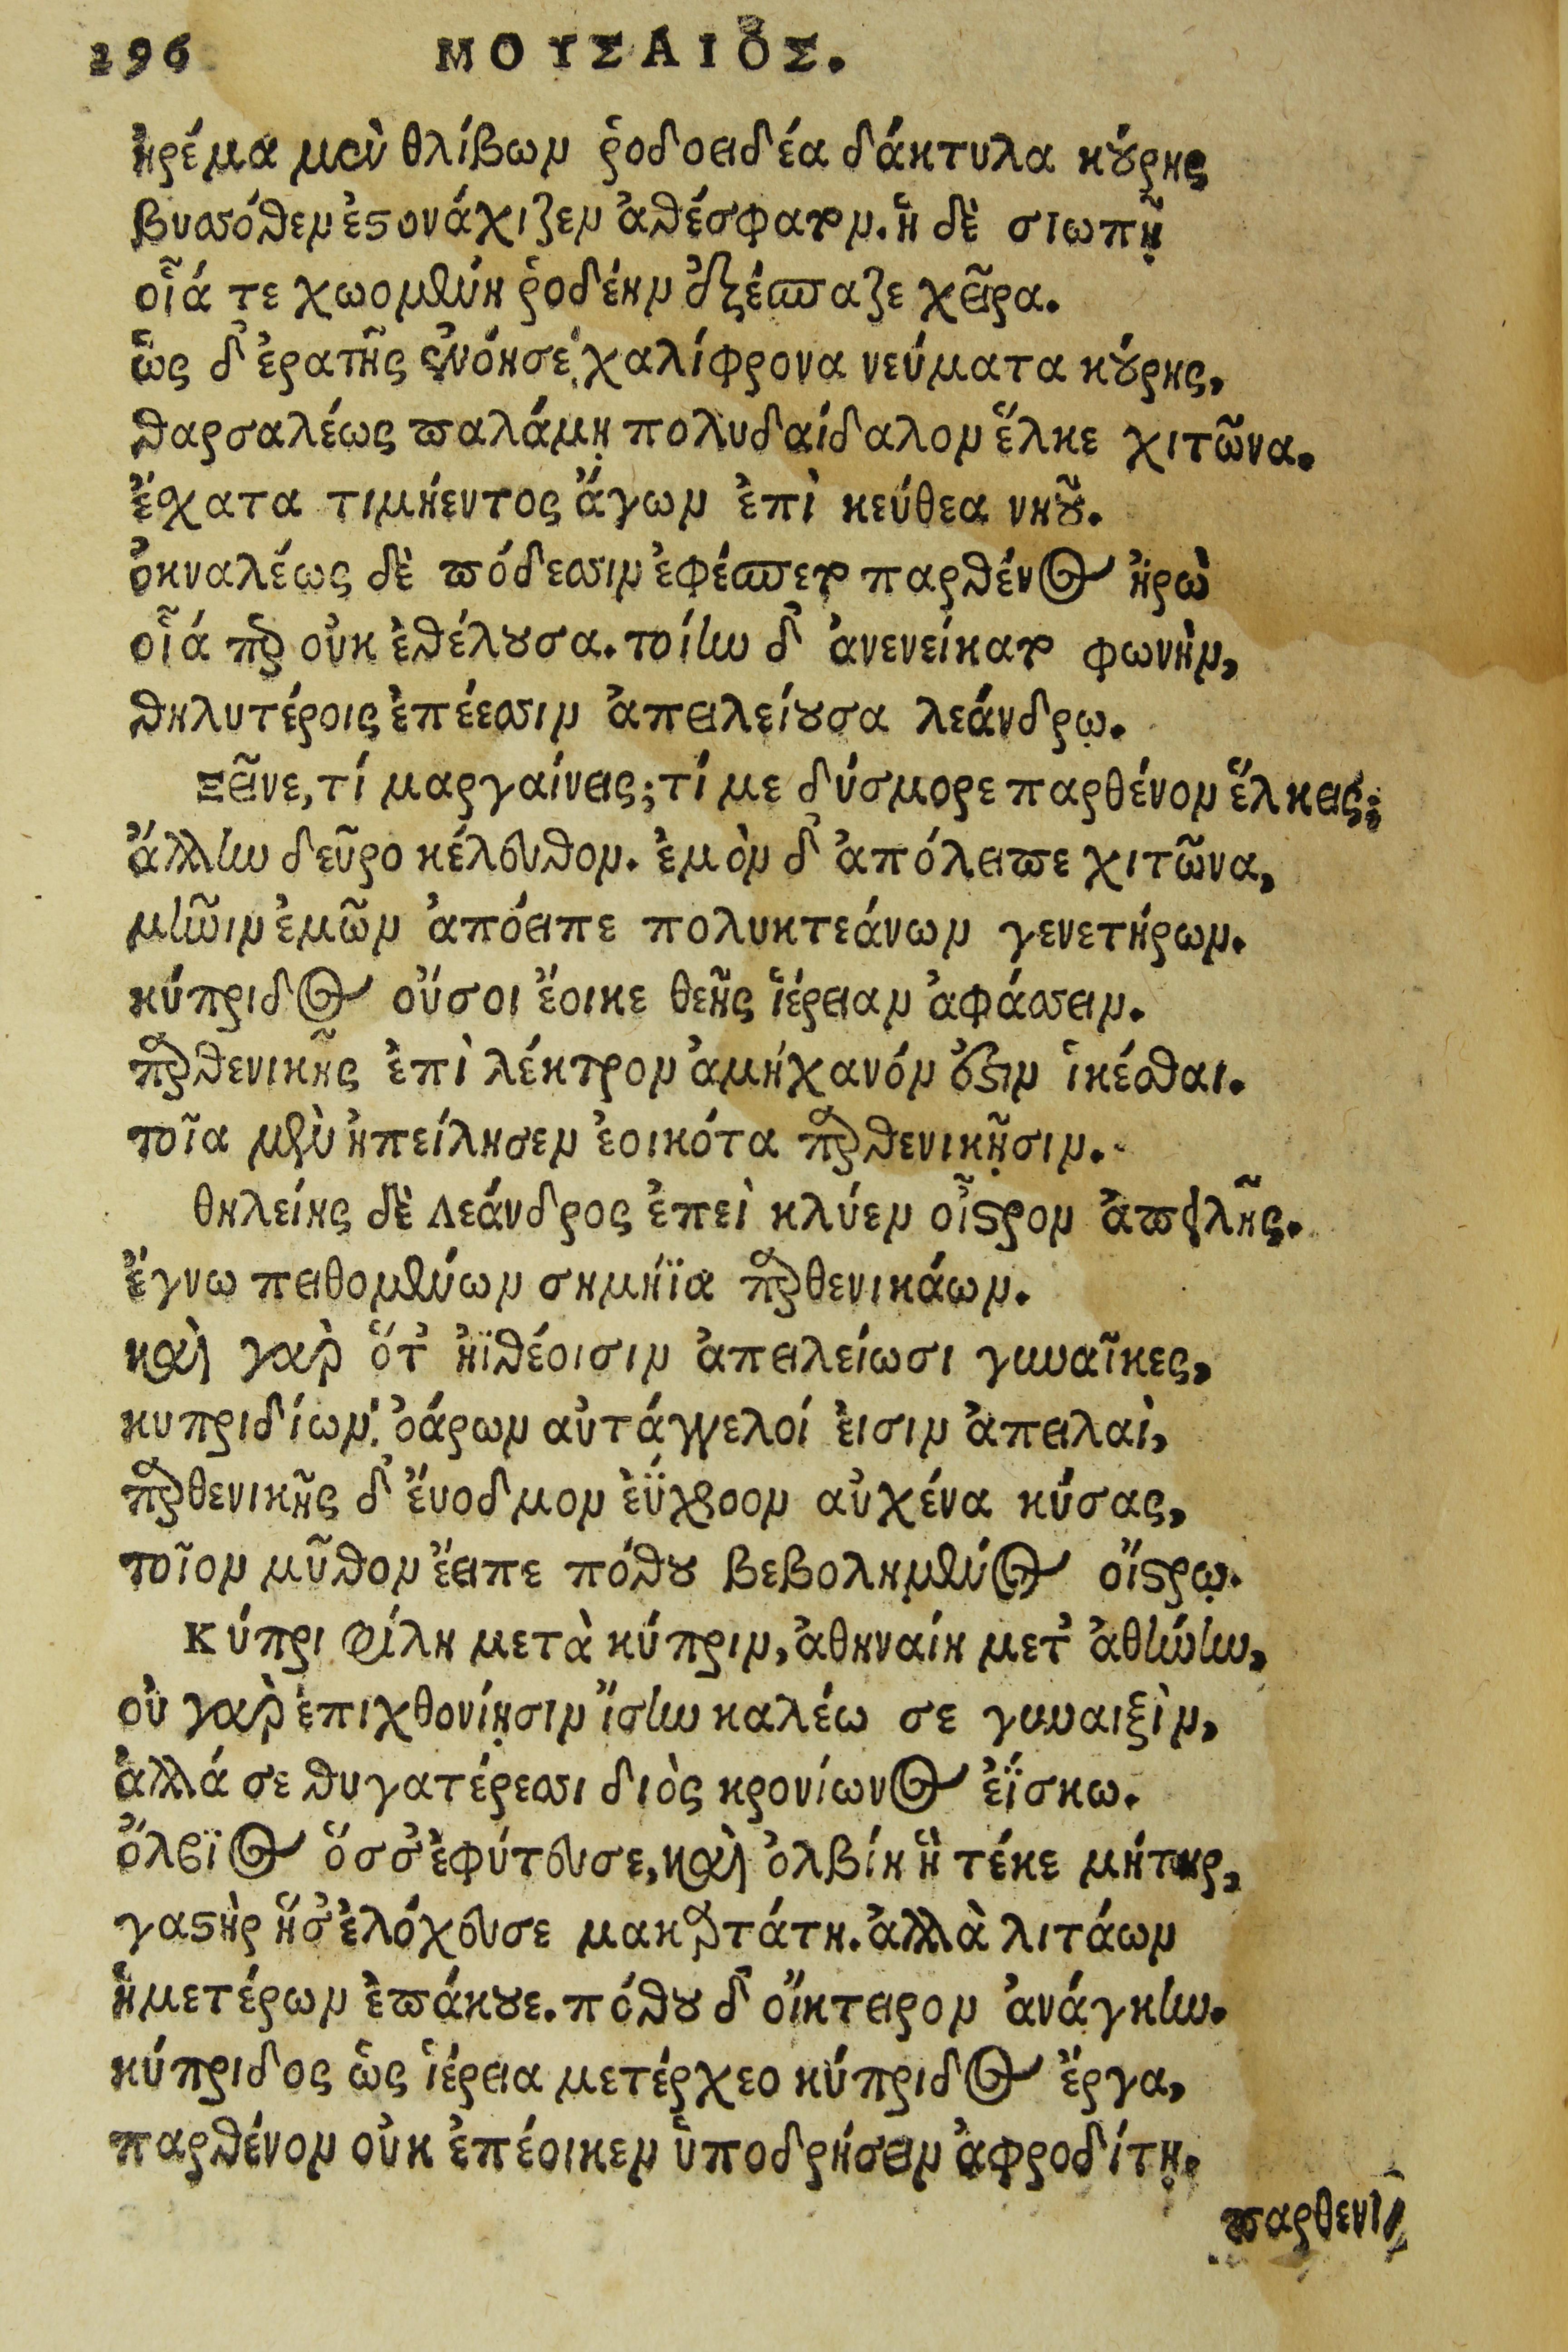 296 ΜΟΥΣΑΙΟΣ.
ἠρέμα μὲν θλίβων ῥοδοειδέα δάκτυλα κούρης
βυσσόθεν ἐστονάχιζεν ἀθέσφατον. ἣ δὲ σιωπῇ
οἷά τε χωομένη ῥοδέην ἐξέσπασε χεῖρα.
ὡς δ' ἐρατῆς ἐνόησε χαλίφρονα νεύματα κούρης,
θαρσαλέως παλάμῃ πολυδαίδαλον ἕλκε χιτῶνα.
ἔσχατα τιμήεντος ἄγων ἐπὶ κεύθεα νηοῦ.
ὀκναλέως δὲ πόδεσσιν ἐφέσπετο παρθένος ἡρὼ
οἷά περ οὐκ ἐθέλουσα. τοίην δ' ἀνενείκατο φωνὴν,
θηλυτέροις ἐπέεσσιν ἀπειλείουσα λεάνδρῳ.
Ξεῖνε, τί μαργαίνεις; τί με δύσμορε παρθένον ἕλκεις;
ἄλλην δεῦρο κέλευθον. ἐμὸν δ' ἀπόλειπε χιτῶνα,
μῆνιν ἐμῶν ἀπόειπε πολυκτεάνων γενετήρων.
κύπριδος οὔ σοι ἔοικε θεῆς ἱέρειαν ἀφάσσειν.
παρθενικῆς ἐπὶ λέκτρον ἀμήχανόν ἐστιν ἱκέσθαι.
τοῖα μὲν ἠπείλησεν ἐοικότα παρθενικῇσιν.
θηλείης δὲ Λεάνδρος ἐπεὶ κλύεν οἶστρον ἀπειλῆς.
ἔγνω πειθομένων σημήϊα παρθενικάων.
καὶ γὰρ ὅτ' ἠϊθέοισιν ἀπειλείωσι γυναῖκες,
κυπριδίων ὀάρων αὐτάγγελοί εἰσιν ἀπειλαὶ,
παρθενικῆς δ' ἔυοδμον ἐΰχροον αὐχένα κύσας,
τοῖον μῦθον ἔειπε πόθου βεβολημένος οἴστρῳ.
Κύπρι φίλη μετὰ κύπριν, ἀθηναίη μετ' ἀθήνην,
οὐ γὰρ ἐπιχθονίῃσιν ἴσην καλέω σε γυναιξὶν,
ἀλλά σε θυγατέρεσσι διὸς κρονίωνος ἐΐσκω.
ὄλβϊος ὅς σ' ἐφύτευσε, καὶ ὀλβίη ἣ τέκε μήτηρ,
γαστὴρ ἥ σ' ἐλόχευσε μακαρτάτη. ἀλλὰ λιτάων
ἡμετέρων ἐπάκουε. πόθου δ' οἴκτειρον ἀνάγκην.
κύπριδος ὡς ἱέρεια μετέρχεο κύπριδος ἔργα,
παρθένον οὐκ ἐπέοικεν ὑποδρήσειν ἀφροδίτῃ.